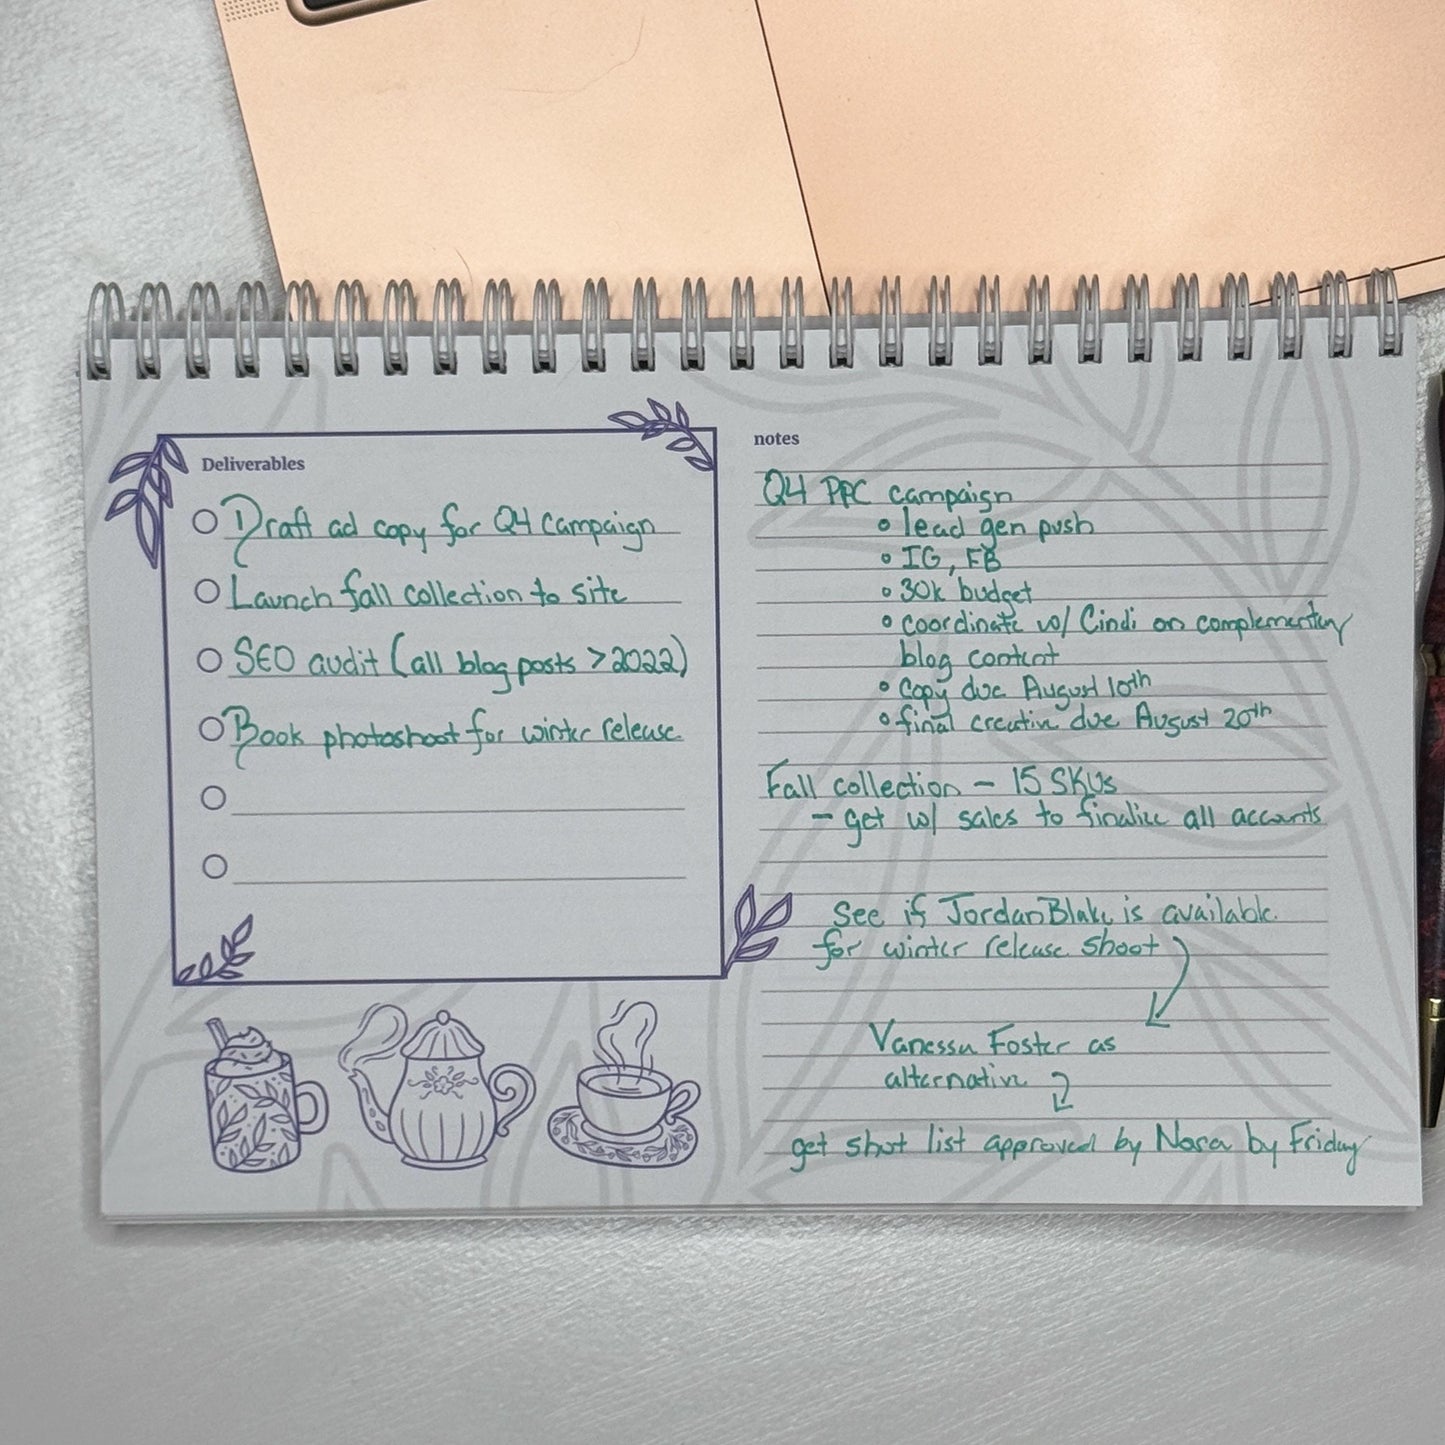 Deliverables
Draft ad copy for Q4 campaign
Launch fall collection to site
SEO audit (all blog posts >2022)
Book photoshoot for winter release
notes
Q4 PPC campaign
lead gen push
IG, FB
30k budget
coordinate w/ Cindi on complementary
blog content
copy due August 10th
final creative due August 20th
Fall collection - 15 SKUs
- get w/ sales to finalize all accounts
See if Jordan Blake is available
for winter release shoot
Vanessa Foster as
alternative
get shot list approved by Nora by Friday